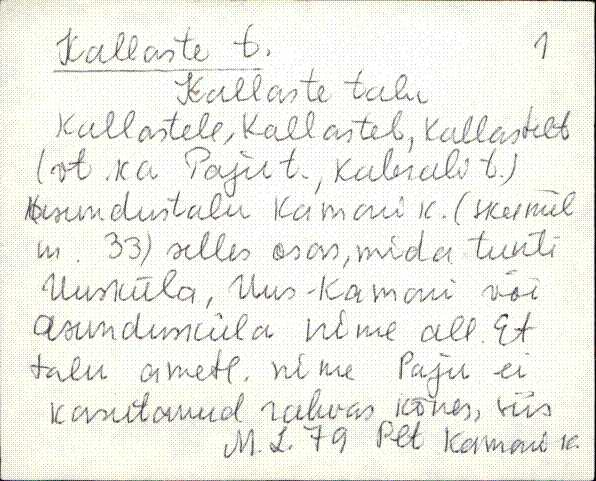 Kallaste t. 1
Kallaste talu
Kallastele, Kallastel, Kallastelt
(vt. ka Paju t., Kaberali t.)
Asundustalu Kamari k. (skeemil
nr. 33) selles osas, mida tunti
Uusküla, Uus-Kamari või
Asundusküla nime all. Et
talu ametl. nime Paju ei
kasutanud rahvas kõnes, siis
M. L. 79 Plt Kamari k.